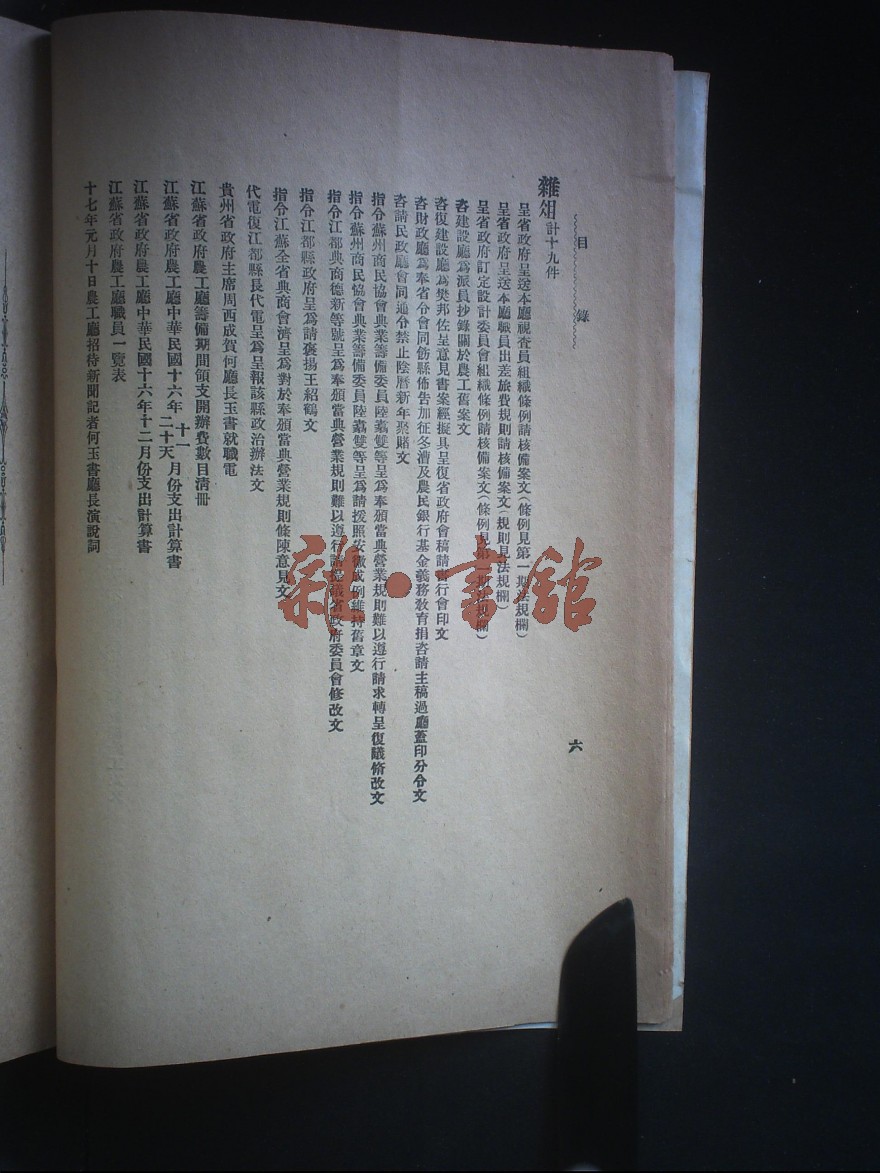 目錄
六
雜俎 計十九件
呈省政府呈送本廳視查員組織條例請核備案文(條例見第一期法規欄)
呈省政府呈送本廳職員出差旅費規則請核備案文(規則見法規欄)
呈省政府訂定設計委員會組織條例請核備案文(條例見第一期法規欄)
咨建設廳為派員抄錄關於農工舊案文
咨復建設廳為樊邦佐呈意見書案經擬具呈復省政府會稿請書行會印文
咨財政廳為奉省令會同飭縣佈告加征冬漕及農民銀行基金義務教育捐咨請主稿過廳蓋印分令文
咨請民政廳會同通令禁止陰曆新年聚賭文
指令蘇州商民協會典業籌備委員陸翥雙等呈為奉頒當典營業規則難以遵行請求轉呈復議修改文
指令蘇州商民協會典業籌備委員陸翥雙等呈為請援照安徽成例維持舊章文
指令江都典商德新等號呈為奉頒當典營業規則難以遵行請提議省政府委員會修改文
指令江都縣政府呈為請褒揚王紹鶴文
指令江蘇全省典商會濟呈為對於奉頒當典營業規則條陳意見文
代電復江都縣長代電呈為呈報該縣政治辦法文
貴州省政府主席周西成賀何廳長玉書就職電
江蘇省政府農工廳籌備期間領支開辦費數目清冊
江蘇省政府農工廳中華民國十六年十一月二十天份支出計算書
江蘇省政府農工廳中華民國十六年十二月份支出計算書
江蘇省政府農工廳職員一覽表
十七年元月十日農工廳招待新聞記者何玉書廳長演說詞